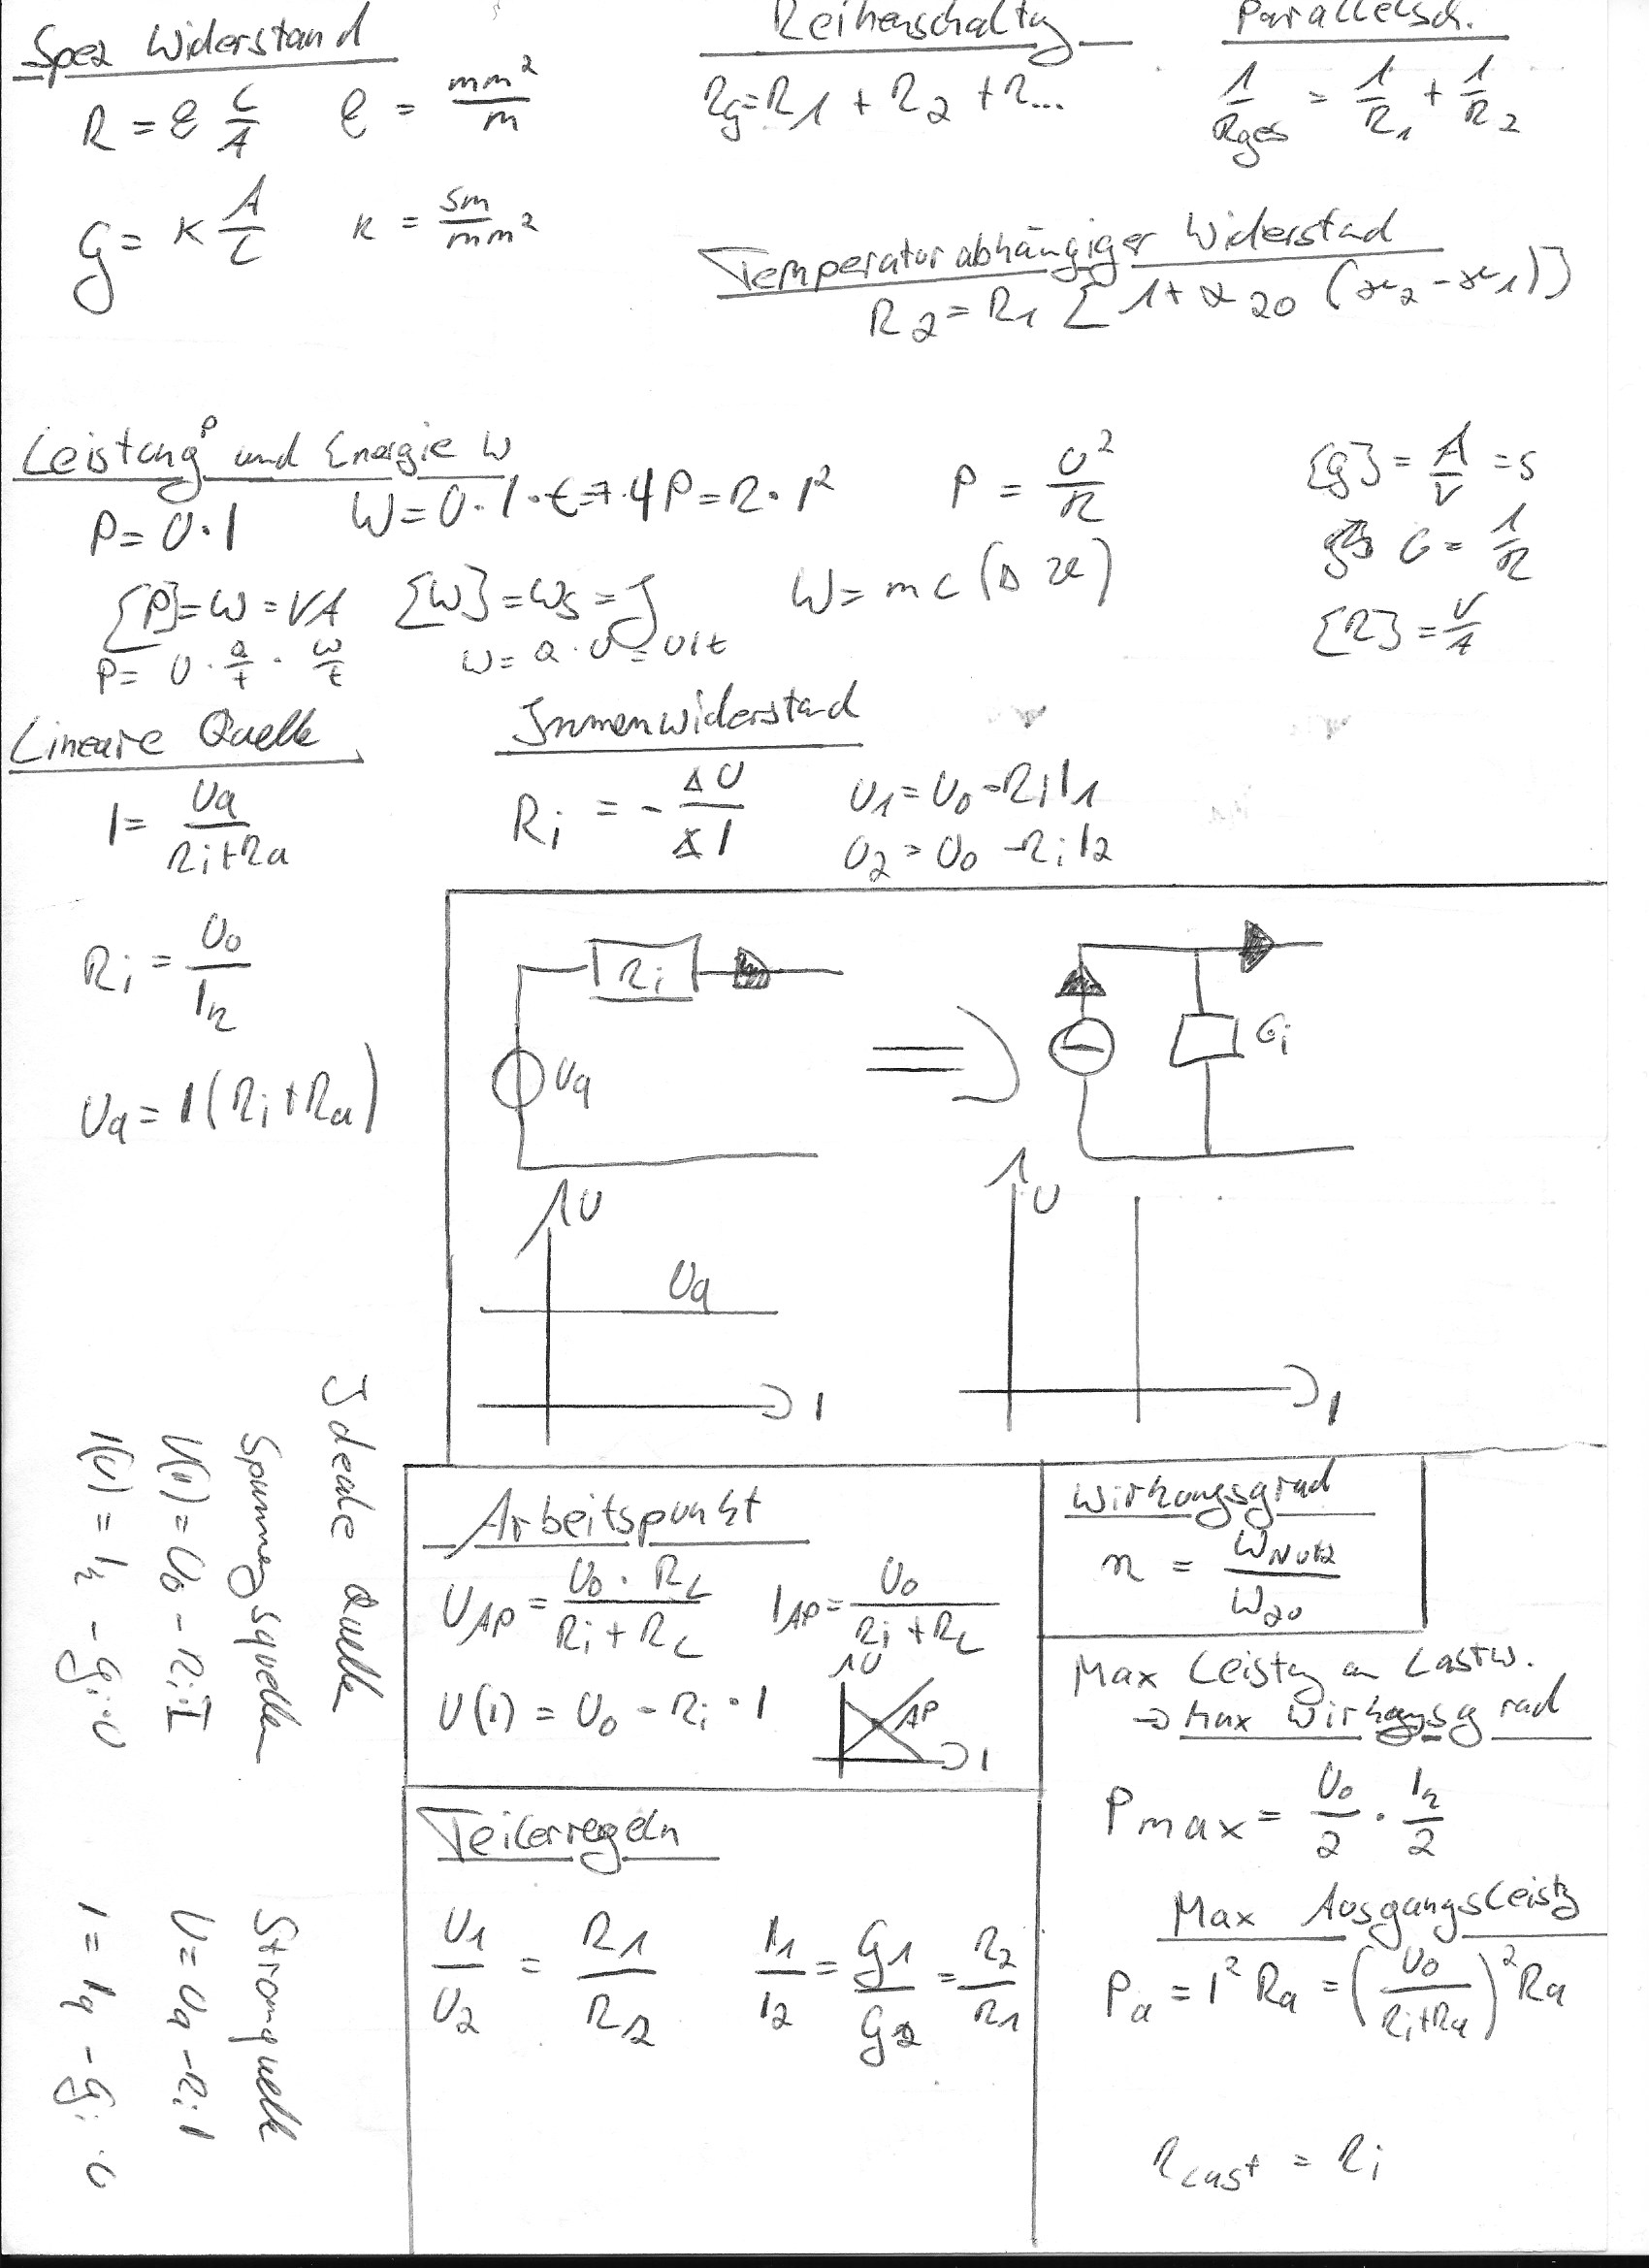 Spez Widerstand
R = ϱ L/A   ϱ = mm²/m
G = κ A/L   κ = Sm/mm²
Reihenschaltg
Rg = R1 + R2 + R...
Parallelsch.
1/Rges = 1/R1 + 1/R2
Temperatorabhängiger Widerstad
R2 = R1 [1 + α20 (ϑ2 - ϑ1)]
Leistung P und Energie W
P = U · I   W = U · I · t   P = R · I²   P = U²/R
[P] = W = VA   [W] = Ws = J   W = m c (Δϑ)
P = U · Q/t · W/t   W = Q · U = UIt
[G] = A/V = S
G = 1/R
[R] = V/A
Lineare Quelle
I = Uq/(Ri+Ra)
Ri = U0/Ik
Uq = I (Ri + Ra)
Innenwiderstand
Ri = - ΔU/ΔI
U1 = U0 - Ri I1
U2 = U0 - Ri I2
Ri
Uq
Gi
U
Uq
I
U
I
Ideale Quelle
Spannungsquelle
U(I) = U0 - Ri I
I(U) = Ik - Gi · U
Stromquelle
U = Uq - Ri I
I = Iq - Gi · U
Arbeitspunkt
UAP = U0 · RL/(Ri + RL)   IAP = U0/(Ri + RL)
U(I) = U0 - Ri · I
U
AP
I
Wirkungsgrad
η = WNutz/Wzu
Max Leistg an Lastw.
→ Max Wirkungsgrad
Pmax = U0/2 · Ik/2
Max Ausgangsleistg
Pa = I² Ra = (U0/(Ri+Ra))² Ra
RLast = Ri
Teilerregeln
U1/U2 = R1/R2   I1/I2 = G1/G2 = R2/R1